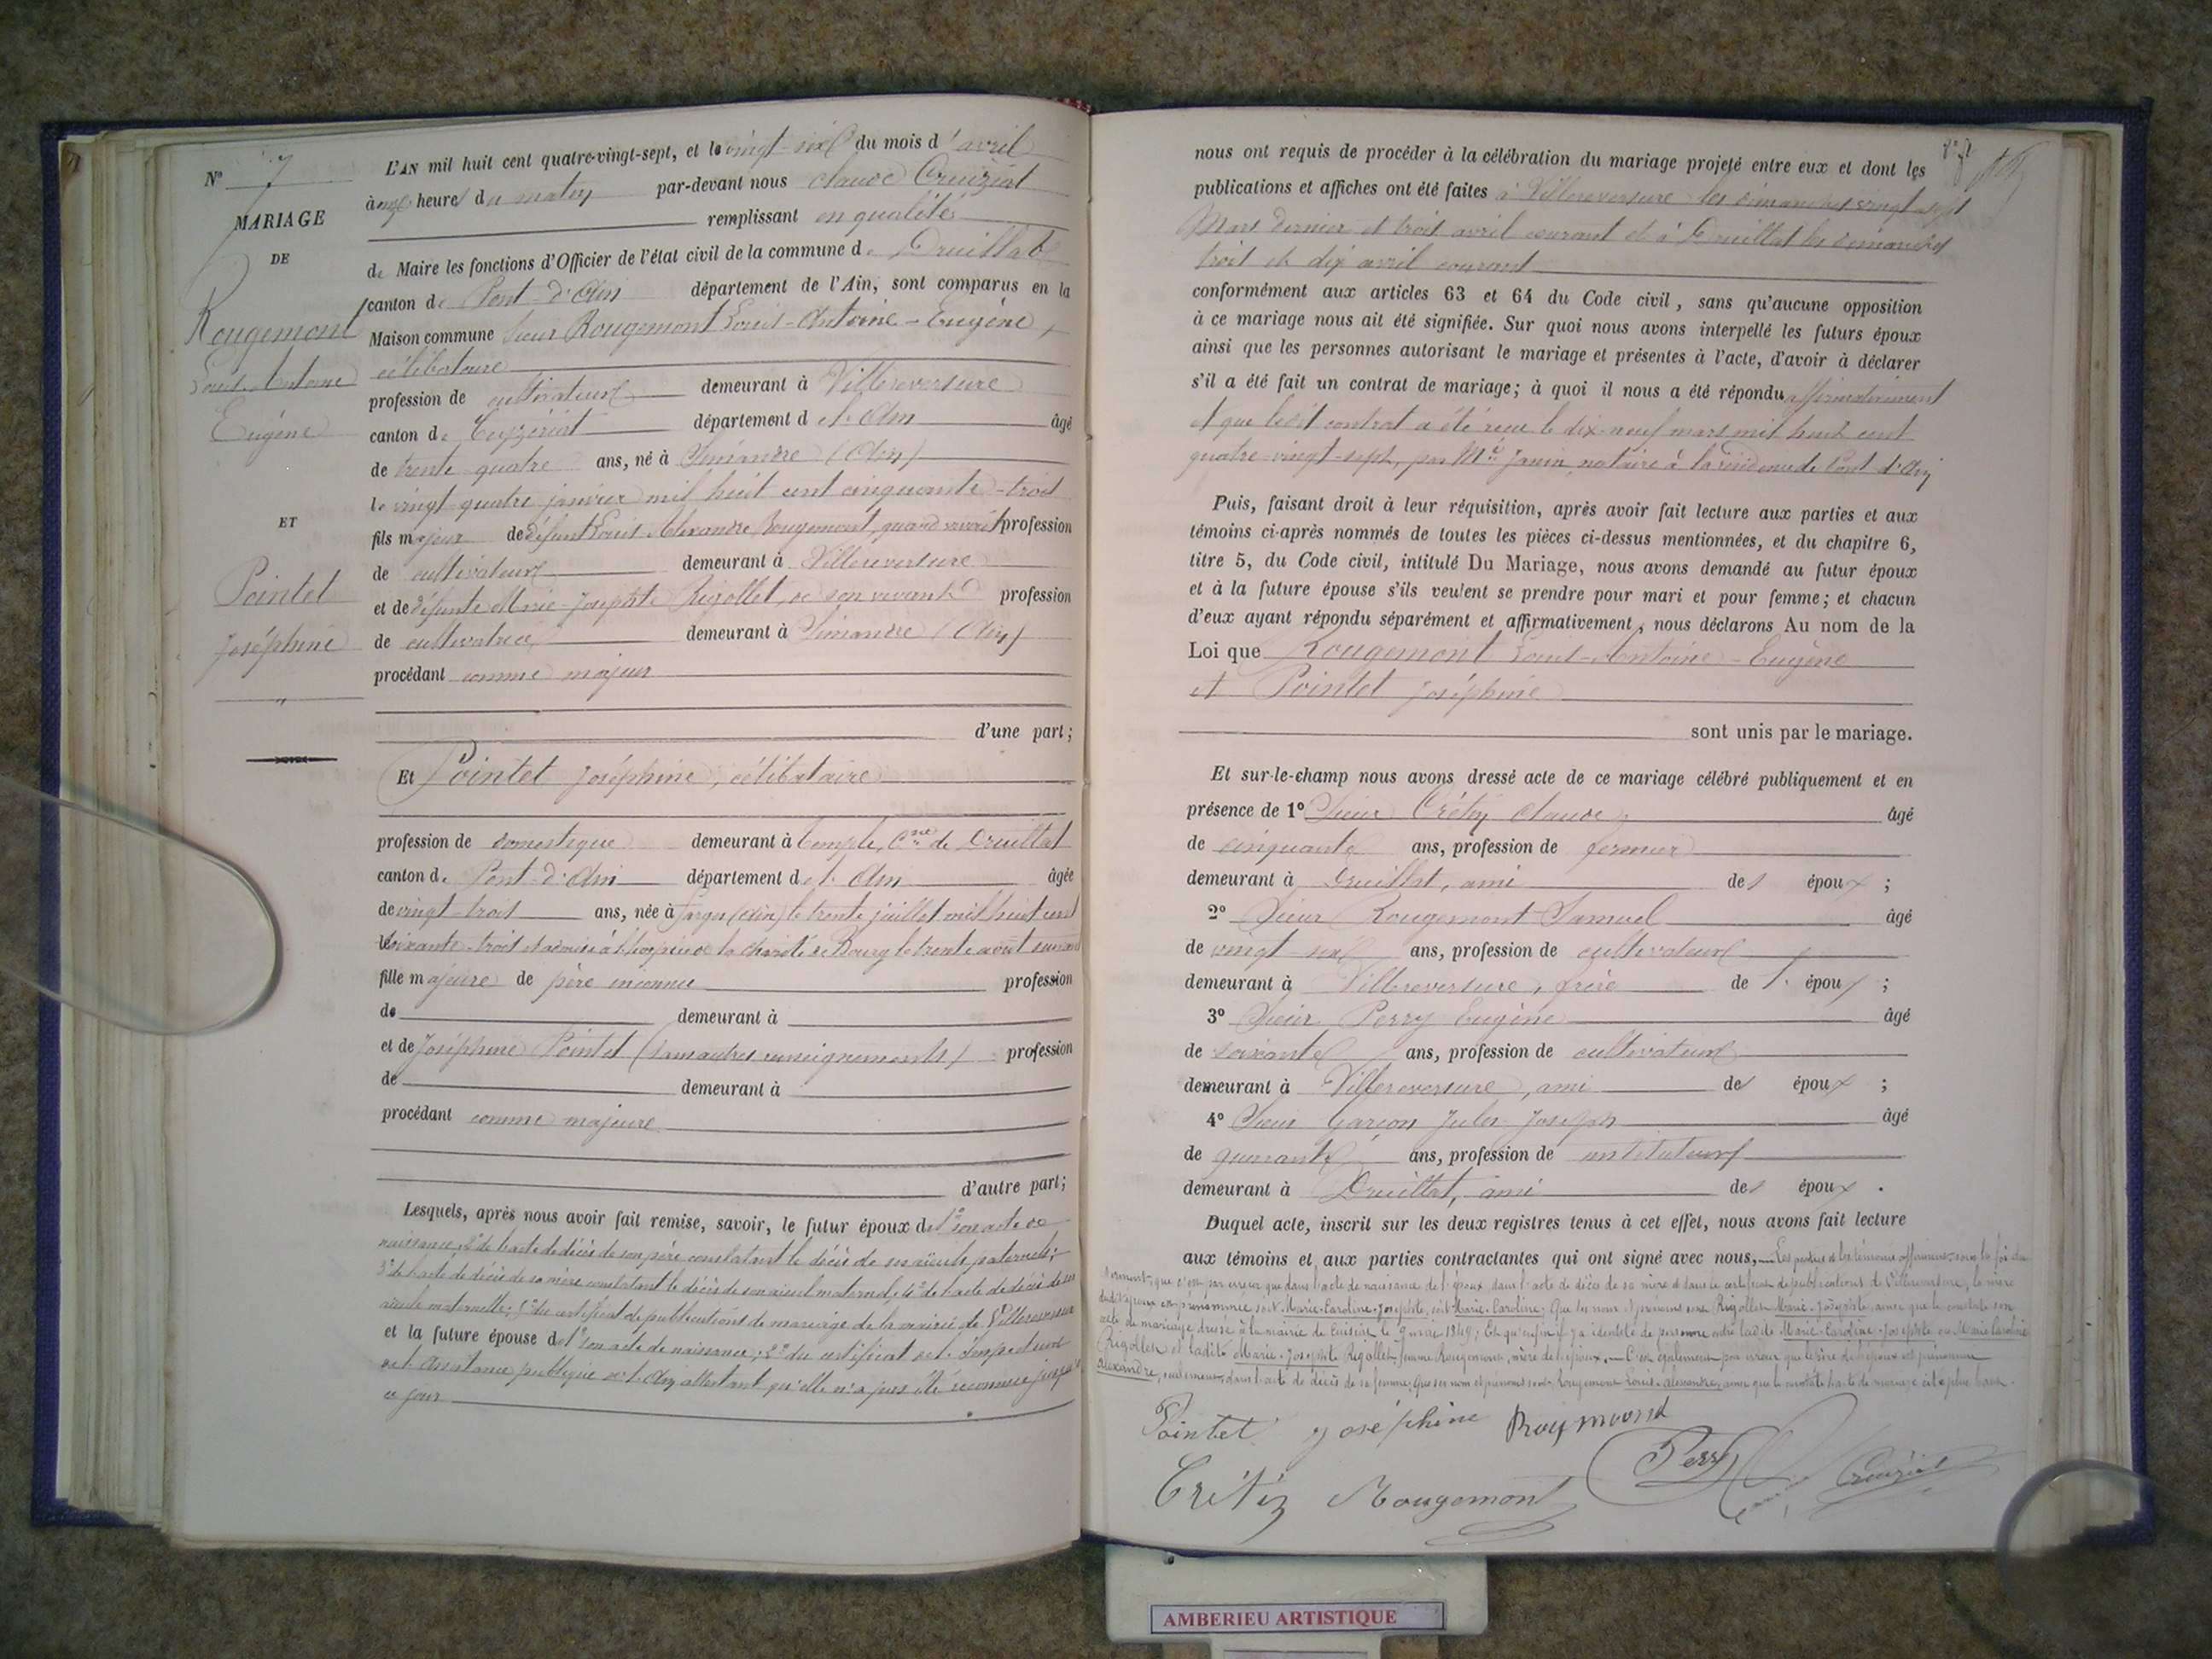 N° 7
MARIAGE
DE
Rougemont
Louis-Antoine
Eugène
ET
Pointet
Joséphine
L'AN mil huit cent quatre-vingt-sept, et le vingt-six du mois d'avril
à onze heures du matin par-devant nous Claude Cruiziat
remplissant en qualité
de Maire les fonctions d'Officier de l'état civil de la commune de Druillat
canton de Pont-d'Ain département de l'Ain, sont comparus en la
Maison commune Sieur Rougemont Louis-Antoine-Eugène,
célibataire
profession de cultivateur demeurant à Villereversure
canton de Ceyzériat département de l'Ain âgé
de trente quatre ans, né à Simandre (Ain)
le vingt quatre janvier mil huit cent cinquante-trois
fils majeur de défunt Louis Alexandre Rougemont, quand vivait profession
de cultivateur demeurant à Villereversure
et de défunte Marie-Josephte Rigollet, de son vivant profession
de cultivatrice demeurant à Simandre (Ain)
procédant comme majeur
d'une part;
Et Pointet Joséphine, célibataire
profession de domestique demeurant à Temple, Cne de Druillat
canton de Pont-d'Ain département de l'Ain âgée
de vingt-trois ans, née à Farges (Ain) le trente juillet mil huit cent
soixante-trois et admise à l'hospice de la Charité de Bourg le trente août suivant
fille majeure de père inconnu profession
de demeurant à
et de Joséphine Pointet (sans autres renseignements) profession
de demeurant à
procédant comme majeure
d'autre part;
Lesquels, après nous avoir fait remise, savoir, le futur époux de 1° son acte de
naissance; 2° de l'acte de décès de son père constatant le décès de ses aïeuls paternels;
3° de l'acte de décès de sa mère constatant le décès de son aïeul maternel; 4° de l'acte de décès de son
aïeule maternelle; 5° du certificat de publications de mariage de la mairie de Villereversure
et la future épouse de 1° son acte de naissance; 2° du certificat de l'Inspecteur
de l'Assistance publique de l'Ain attestant qu'elle n'a pas été reconnue jusqu'à
ce jour
nous ont requis de procéder à la célébration du mariage projeté entre eux et dont les
publications et affiches ont été faites à Villereversure les dimanches vingt-sept
Mars dernier et trois avril courant et à Druillat les dimanches
trois et dix avril courant
conformément aux articles 63 et 64 du Code civil, sans qu'aucune opposition
à ce mariage nous ait été signifiée. Sur quoi nous avons interpellé les futurs époux
ainsi que les personnes autorisant le mariage et présentes à l'acte, d'avoir à déclarer
s'il a été fait un contrat de mariage; à quoi il nous a été répondu affirmativement
et que ledit contrat a été reçu le dix-neuf mars mil huit cent
quatre-vingt-sept, par Me Janin, notaire à la résidence de Pont-d'Ain
Puis, faisant droit à leur réquisition, après avoir fait lecture aux parties et aux
témoins ci-après nommés de toutes les pièces ci-dessus mentionnées, et du chapitre 6,
titre 5, du Code civil, intitulé Du Mariage, nous avons demandé au futur époux
et à la future épouse s'ils veulent se prendre pour mari et pour femme; et chacun
d'eux ayant répondu séparément et affirmativement, nous déclarons Au nom de la
Loi que Rougemont Louis-Antoine-Eugène
et Pointet Joséphine
sont unis par le mariage.
Et sur-le-champ nous avons dressé acte de ce mariage célébré publiquement et en
présence de 1° Sieur Crétin Claude, âgé
de cinquante ans, profession de fermier
demeurant à Druillat, ami des époux;
2° Sieur Rougemont Samuel âgé
de vingt-six ans, profession de cultivateur
demeurant à Villereversure, frère de l'époux;
3° Sieur Perry Eugène âgé
de soixante ans, profession de cultivateur
demeurant à Villereversure, ami des époux;
4° Sieur Garçon Jules Joseph âgé
de quarante ans, profession de instituteur
demeurant à Druillat, ami des époux.
Duquel acte, inscrit sur les deux registres tenus à cet effet, nous avons fait lecture
aux témoins et aux parties contractantes qui ont signé avec nous, — Les parties et les témoins affirment sous la foi du
serment, que c'est par erreur que dans l'acte de naissance de l'époux, dans l'acte de décès de sa mère et dans le certificat de publications de Villereversure, la mère
dudit époux est prénommée soit Marie-Caroline-Josephte, soit Marie-Caroline; Que ses nom et prénoms sont Rigollet Marie-Josephte, ainsi que le constate son
acte de mariage dressé à la mairie de Cuisiat le 9 mai 1849; Et qu'enfin il y a identité de personne entre ladite Marie-Caroline-Josephte ou Marie Caroline
Rigollet et ladite Marie-Josephte Rigollet femme Rougemont, mère de l'époux. — C'est également par erreur que le père de l'époux est prénommé
Alexandre, seulement, dans l'acte de décès de sa femme; Que ses nom et prénoms sont Rougemont Louis-Alexandre, ainsi que le constate l'acte de mariage cité plus haut.
Pointet Joséphine Rougmont
Crétin Rougemont Perry Cruiziat
AMBERIEU ARTISTIQUE